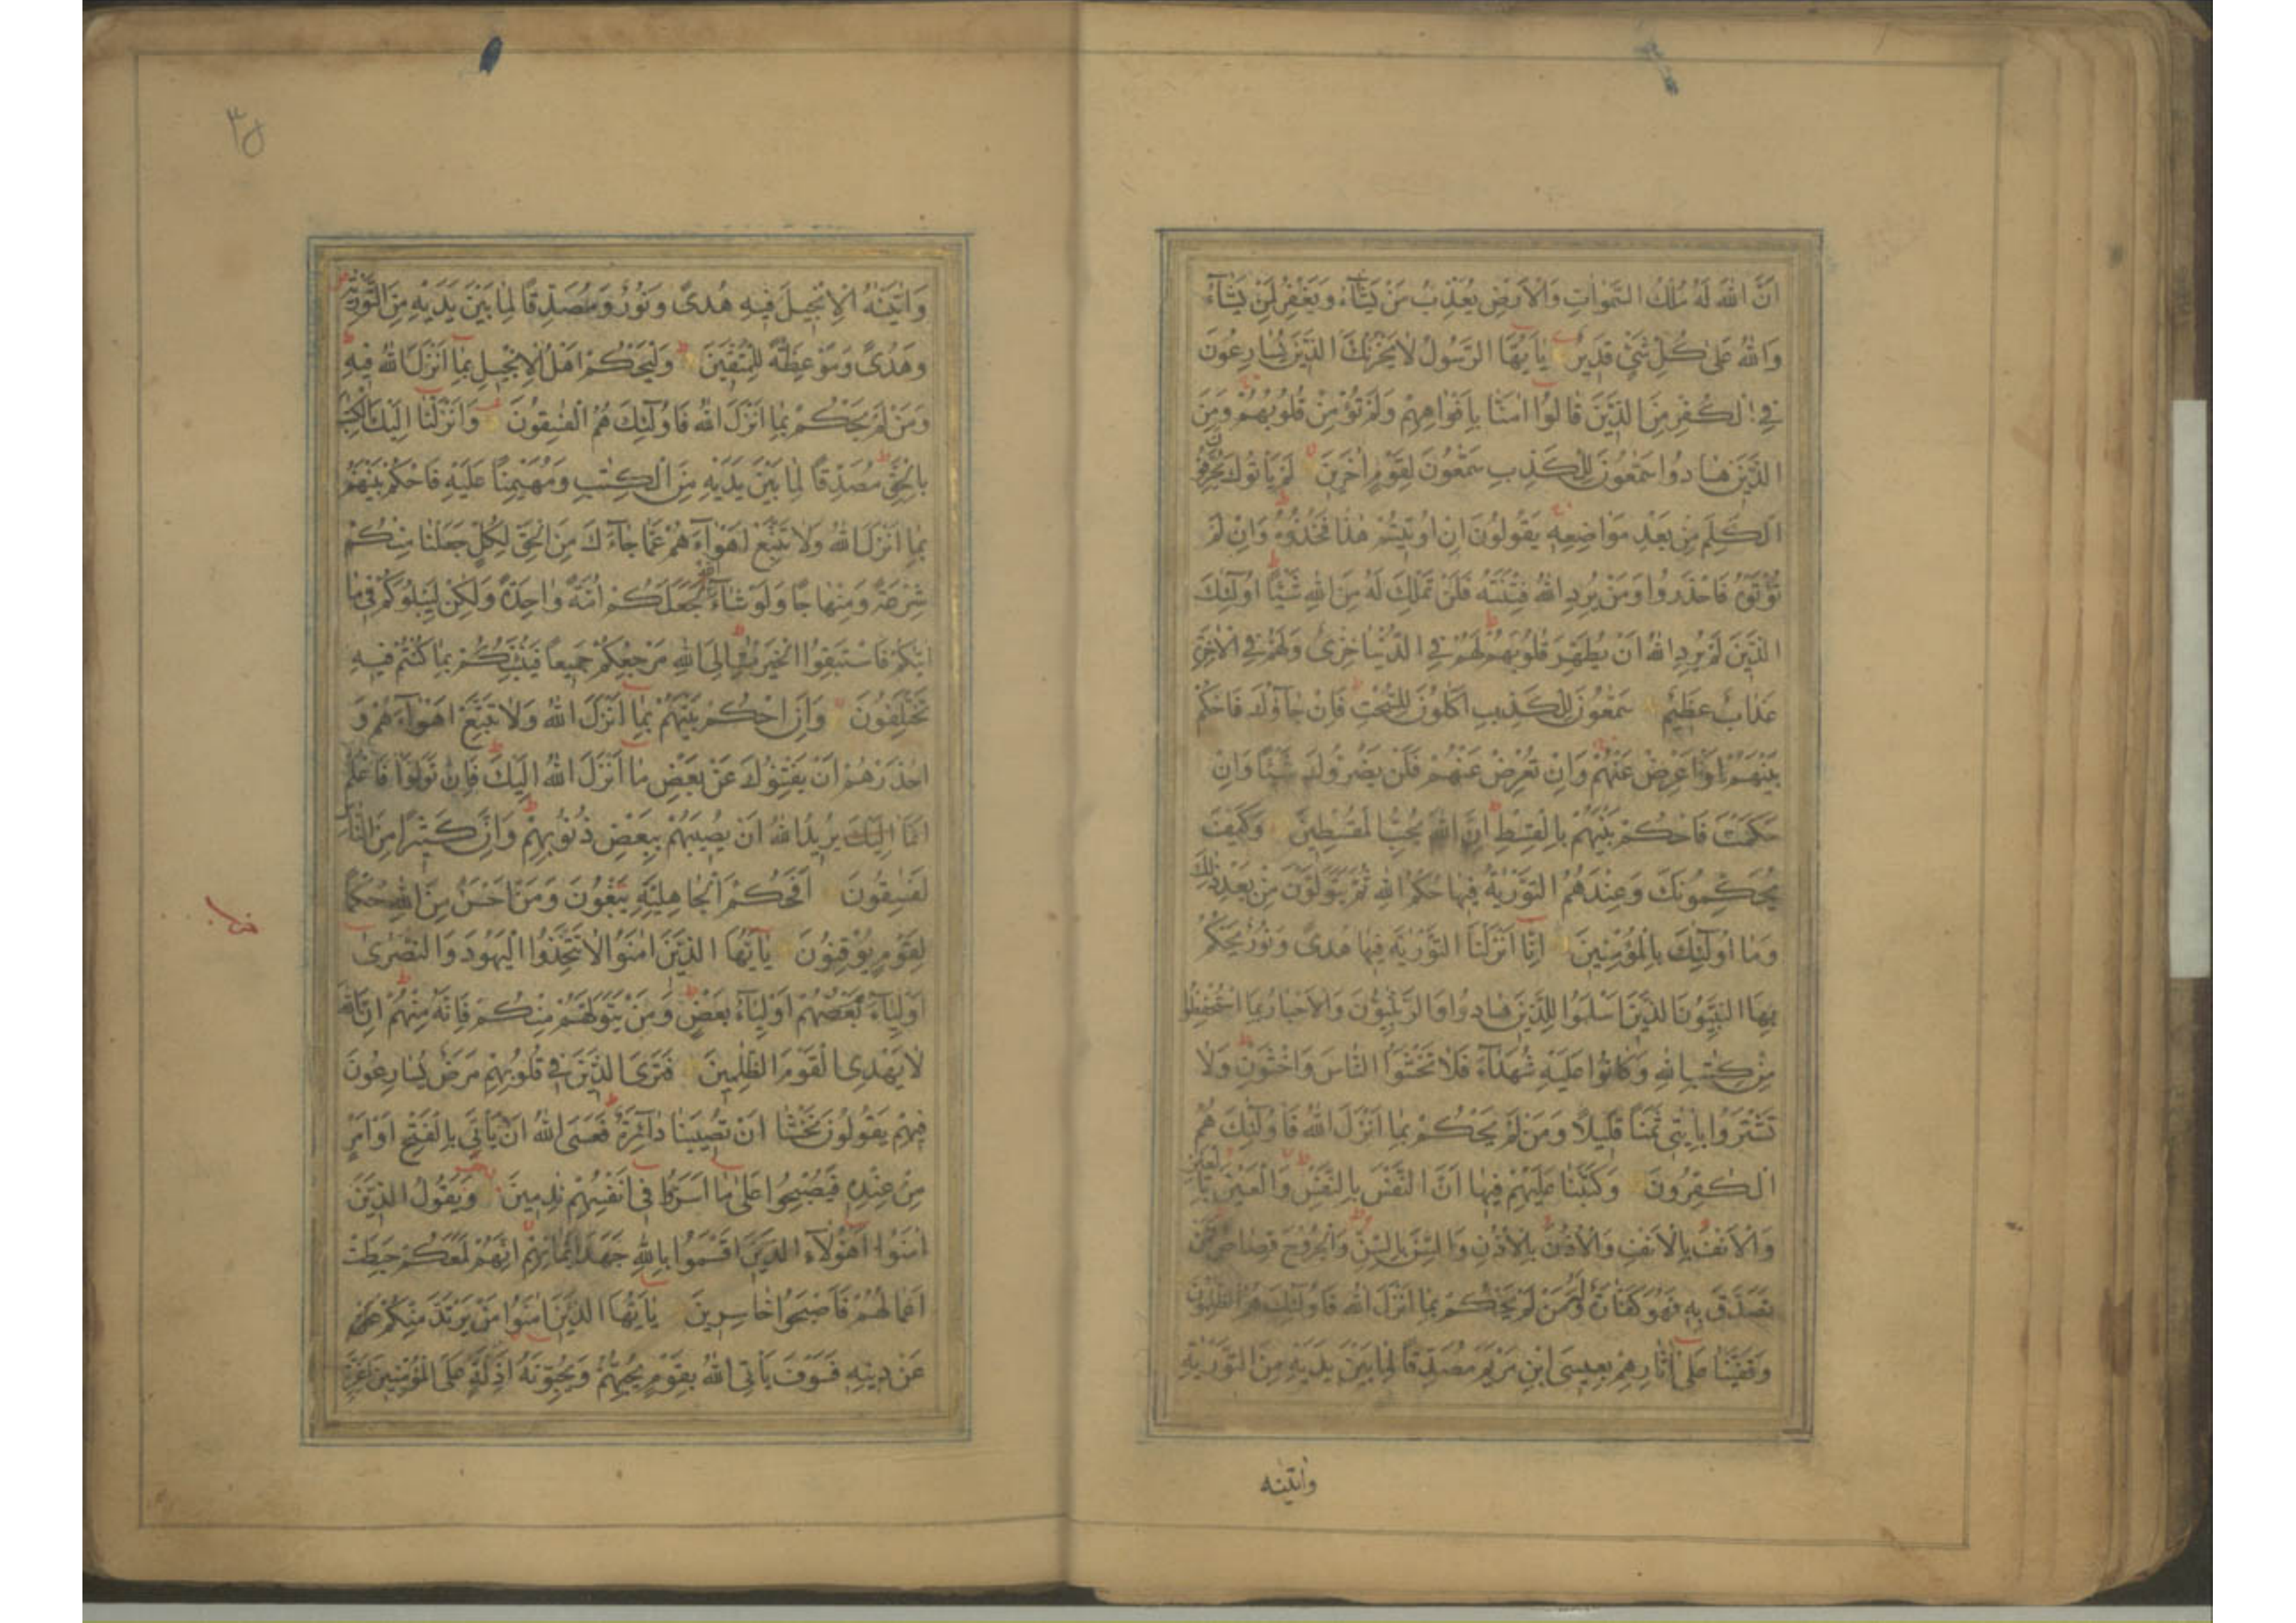 انّ الله له ملك السّموات والارض يعذّب من يشآء ويغفر لمن يشآء
والله على كلّ شئ قدير يايّها الرّسول لا يحزنك الّذين يسارعون
في الكفر من الّذين قالوا امنّا بافواههم ولم تؤمن قلوبهم ومن
الّذين هادوا سمّعون للكذب سمّعون لقوم اخرين لم ياتوك يحرّفون
الكلم من بعد مواضعه يقولون ان اوتيتم هذا فخذوه وان لم
تؤتوه فاحذروا ومن يرد الله فتنته فلن تملك له من الله شيئا اولئك
الّذين لم يرد الله ان يطهّر قلوبهم لهم في الدّنيا خزى ولهم في الاخرة
عذاب عظيم سمّعون للكذب اكّلون للسّحت فان جآؤك فاحكم
بينهم او اعرض عنهم وان تعرض عنهم فلن يضرّوك شيئا وان
حكمت فاحكم بينهم بالقسط انّ الله يحبّ المقسطين وكيف
يحكّمونك وعندهم التّورية فيها حكم الله ثمّ يتولّون من بعد ذلك
وما اولئك بالمؤمنين انّا انزلنا التّورية فيها هدى ونور يحكم
بها النّبيّون الّذين اسلموا للّذين هادوا والرّبّنيّون والاحبار بما استحفظوا
من كتب الله وكانوا عليه شهدآء فلا تخشوا النّاس واخشون ولا
تشتروا بايتى ثمنا قليلا ومن لم يحكم بما انزل الله فاولئك هم
الكفرون وكتبنا عليهم فيها انّ النّفس بالنّفس والعين بالعين
والانف بالانف والاذن بالاذن والسّنّ بالسّنّ والجروح قصاص فمن
تصدّق به فهو كفّارة له ومن لم يحكم بما انزل الله فاولئك هم الظّلمون
وقفّينا على اثارهم بعيسى ابن مريم مصدّقا لما بين يديه من التّورية
واتينه
٣٥
واتينه الانجيل فيه هدى ونور ومصدّقا لما بين يديه من التّورية
وهدى وموعظة للمتّقين وليحكم اهل الانجيل بما انزل الله فيه
ومن لم يحكم بما انزل الله فاولئك هم الفسقون وانزلنا اليك الكتب
بالحقّ مصدّقا لما بين يديه من الكتب ومهيمنا عليه فاحكم بينهم
بما انزل الله ولا تتّبع اهوآءهم عمّا جآءك من الحقّ لكلّ جعلنا منكم
شرعة ومنهاجا ولو شآء الله لجعلكم امّة واحدة ولكن ليبلوكم في ما
اتيكم فاستبقوا الخيرت الى الله مرجعكم جميعا فينبّئكم بما كنتم فيه
تختلفون وان احكم بينهم بما انزل الله ولا تتّبع اهوآءهم و
احذرهم ان يفتنوك عن بعض ما انزل الله اليك فان تولّوا فاعلم
انّما اليك يريد الله ان يصيبهم ببعض ذنوبهم وانّ كثيرا من النّاس
لفسقون افحكم الجاهليّة يبغون ومن احسن من الله حكما
لقوم يوقنون يايّها الّذين امنوا لا تتّخذوا اليهود والنّصرى
اوليآء بعضهم اوليآء بعض ومن يتولّهم منكم فانّه منهم انّ الله
لا يهدى القوم الظّلمين فترى الّذين في قلوبهم مرض يسارعون
فيهم يقولون نخشى ان تصيبنا دآئرة فعسى الله ان ياتى بالفتح او امر
من عنده فيصبحوا على ما اسرّوا في انفسهم ندمين ويقول الّذين
امنوا اهؤلآء الّذين اقسموا بالله جهد ايمانهم انّهم لمعكم حبطت
اعمالهم فاصبحوا خاسرين يايّها الّذين امنوا من يرتدّ منكم عن
عن دينه فسوف ياتى الله بقوم يحبّهم ويحبّونه اذلّة على المؤمنين اعزّة